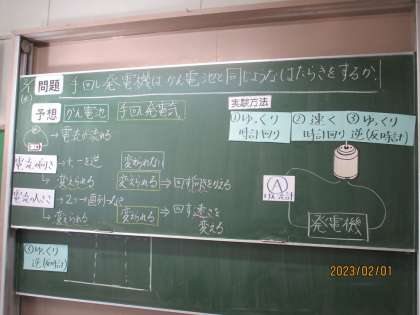 問題 手回し発電機はかん電池と同じようなはたらきをするか。
予想 かん電池 手回し発電き
→電流が流れる
電流の向き→+-を逆 変えられない
↳変えられる 変えられる⇒回す向きを変える
電流の大きさ→2つ→直列つなぎ
↳変えられる 変わる⇒回す速さを変える
実験方法
①ゆっくり時計回り
②速く時計回り
③ゆっくり逆(反時計)
A
検流計
発電機
③ゆっくり
逆(反時計)
2023/02/01